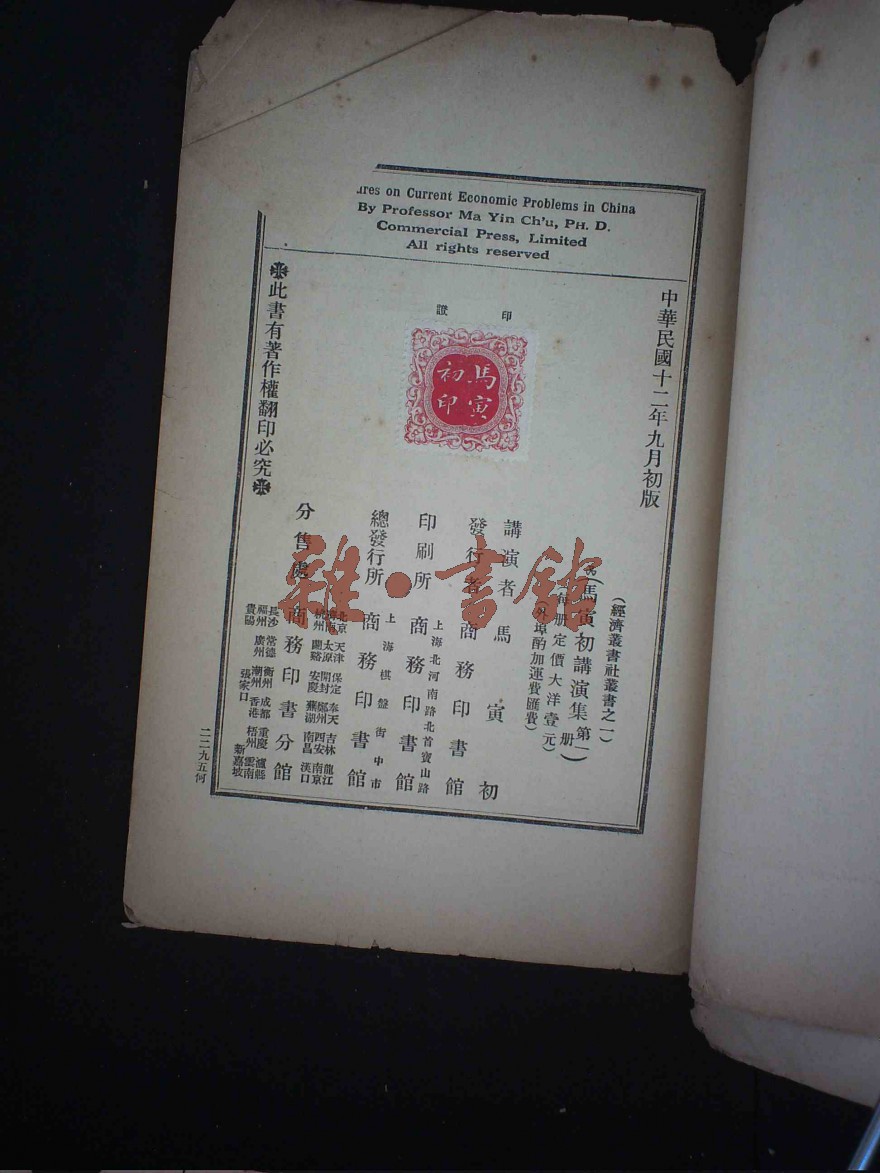 ures on Current Economic Problems in China
By Professor Ma Yin Ch'u, PH. D.
Commercial Press, Limited
All rights reserved
中華民國十二年九月初版
印證
馬寅初印
(經濟叢書社叢書之一)
(馬寅初講演集第一册)
(每册定價大洋壹元)
(外埠酌加運費匯費)
講演者 馬寅初
發行者 商務印書館
印刷所 上海北河南路北首寶山路 商務印書館
總發行所 上海棋盤街中市 商務印書館
分售處 商務印書分館
北京 天津 保定 奉天 吉林 龍江
濟南 太原 開封 鄭州 西安 南京
杭州 蘭谿 安慶 蕪湖 南昌 漢口
長沙 常德 衡州 成都 重慶 瀘縣
福州 廣州 潮州 香港 梧州 雲南
貴陽 張家口 新嘉坡
此書有著作權翻印必究
二二九五何
雜·書館